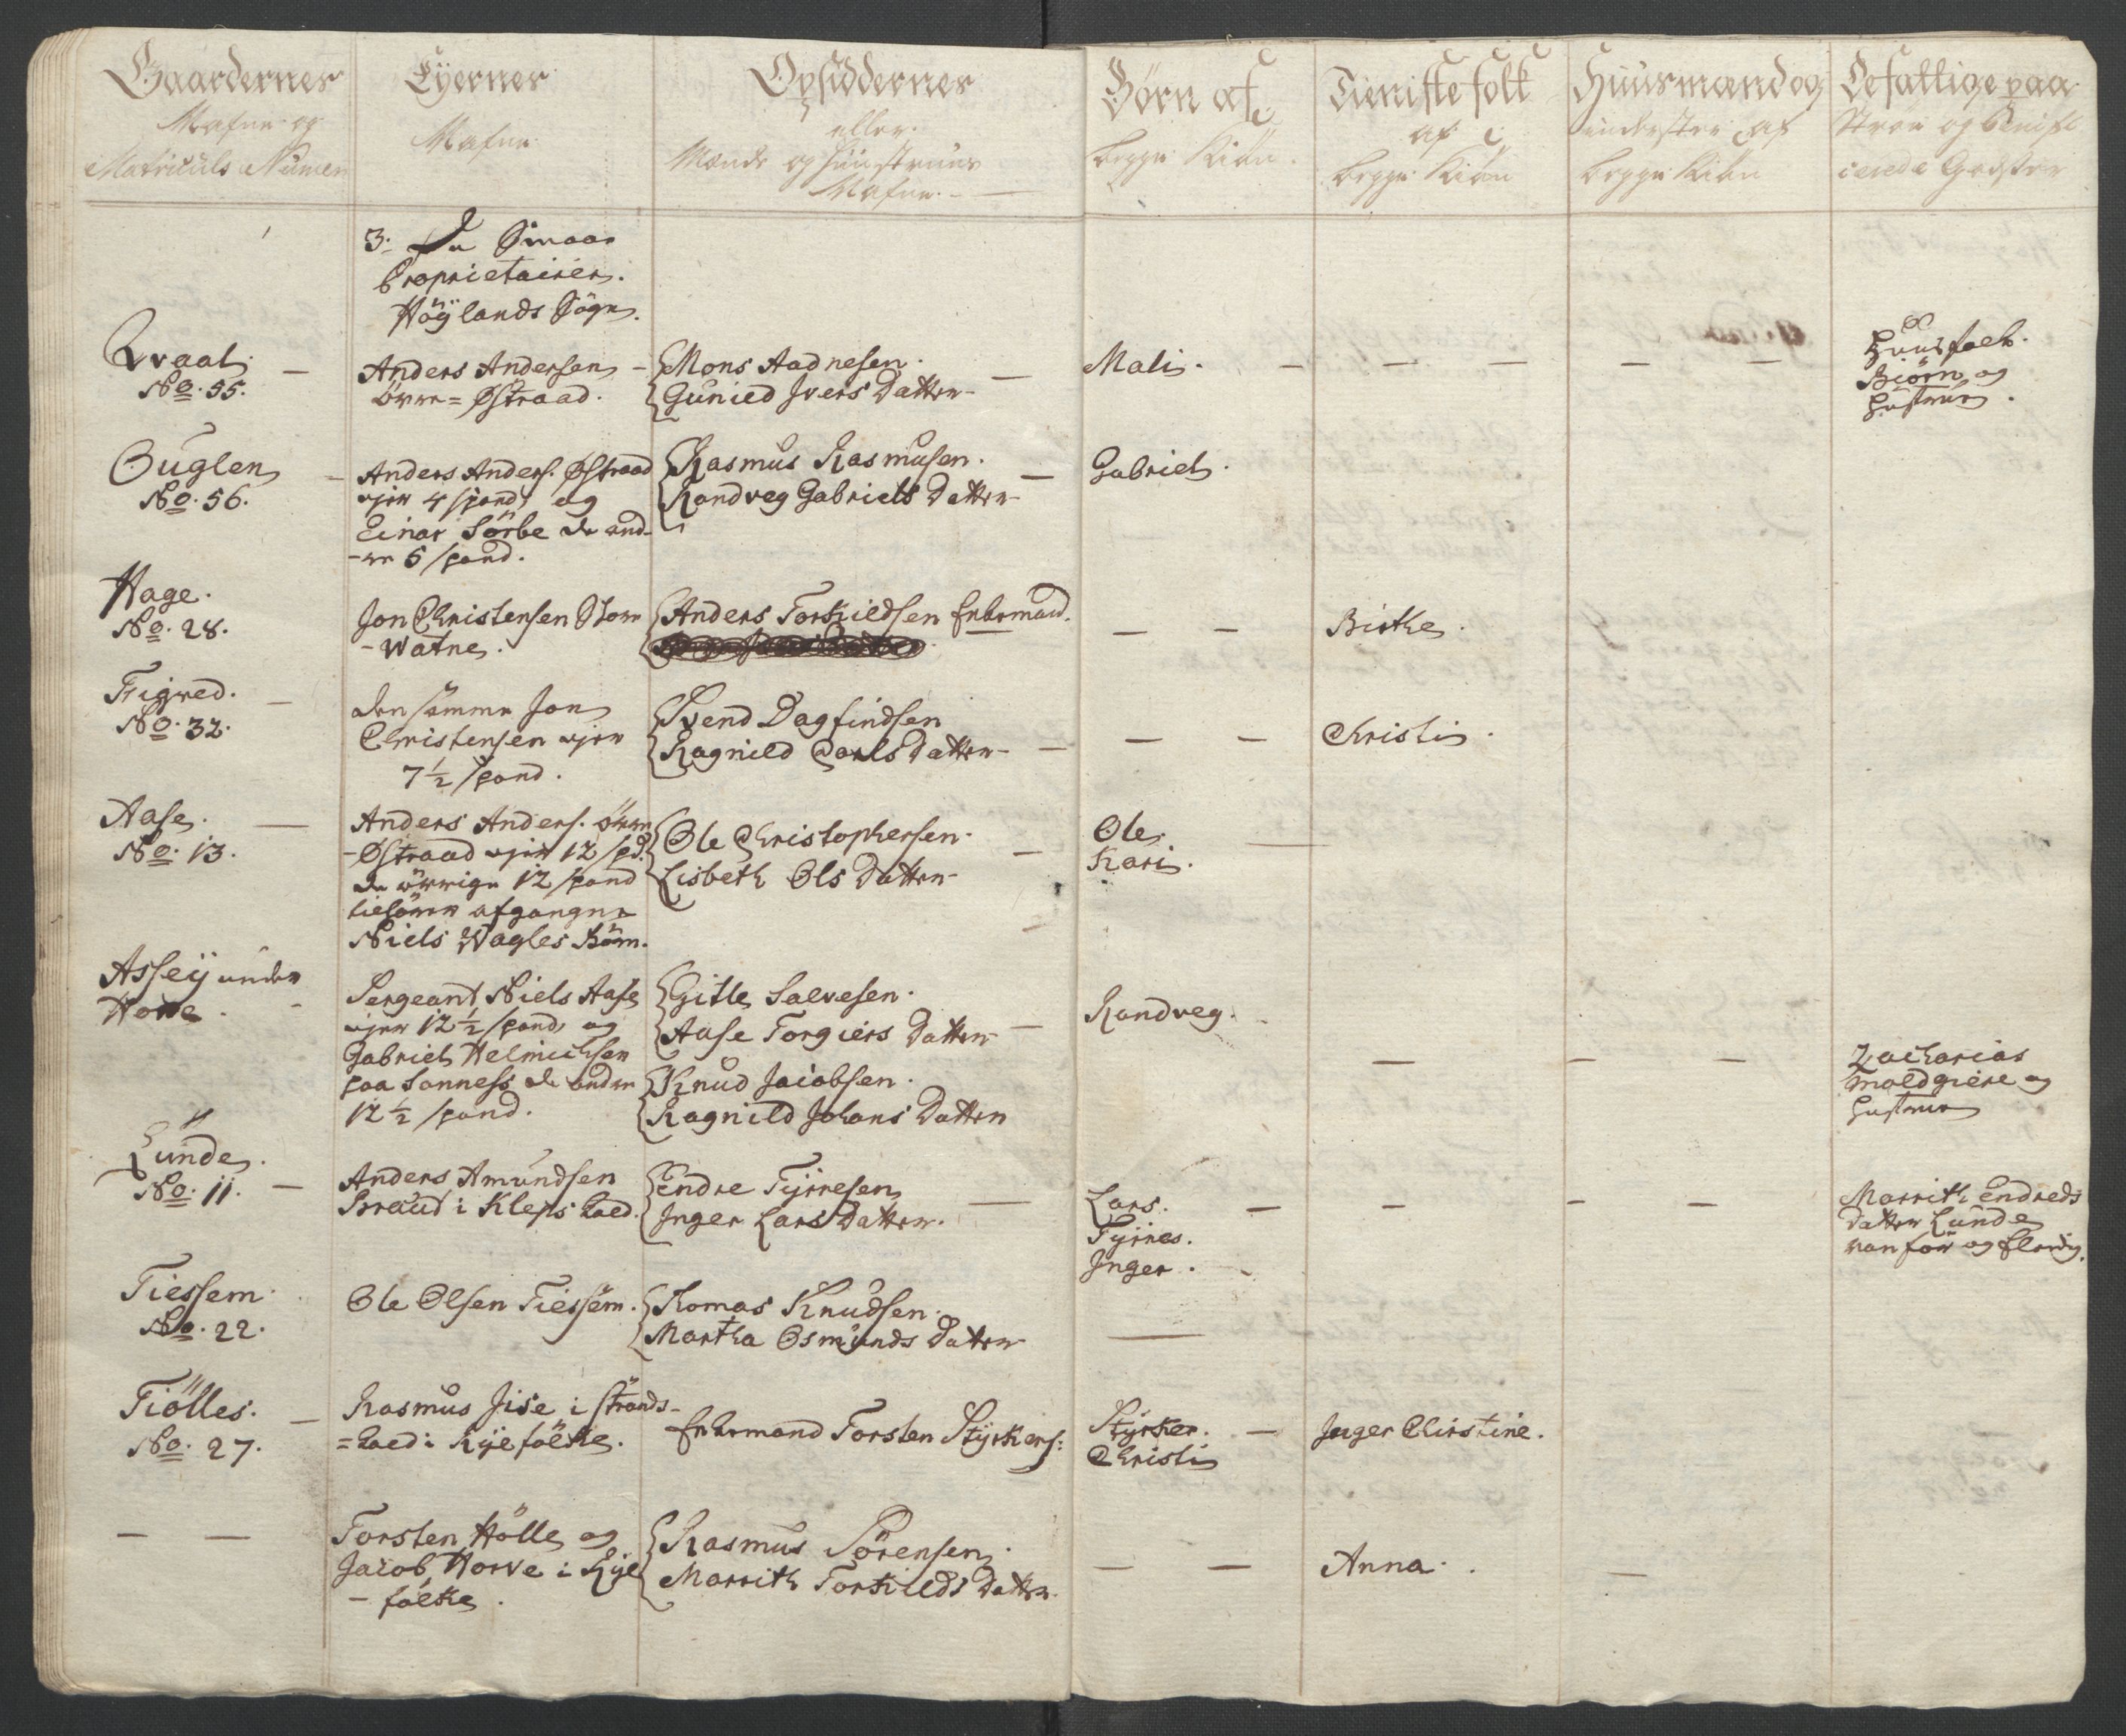 Gaardernes
Nafne og
Matriculs Numer
Eyernes
Nafne
Opsiddernes
eller
Mænds og Huustruers
Nafne.
Børn af
begge Kiøn.
Tieniste folk
af
begge Kiøn
Huusmænd og
inderster af
begge Kiøn
3. De Smaae
Proprietairer.
Höylands Sogn.
Qvaal.
No. 55.
Anders Andersen
övre-Østraad.
Mons Aadnesen.
Gunild Ivers Datter
Mali.
Huusfolk.
Biörn og
Hustrue.
Buglen
No. 56.
Anders Anders. Østraad
ejer 4 spand og
Einar Sörbe de and-
-re 6 spand.
Rasmus Rasmusen.
Randveg Gabriels Datter
Gabriel.
Hage.
No. 28.
Jon Christensen Store
-Watne.
Anders Torkildsen Enkemand.
Birthe.
Figved.
No. 32.
den samme Jon
Christensen ejer
7½ spand.
Svend Dagfindsen
Ragnild Carls Datter
Christi.
Aase.
No. 13.
Anders Anders. övre
-Østraad ejer 12 spd.
de övrige 12 spand
tilhörer afgangne
Niels Wagles Börn.
Ole Christophersen.
Lisbeth Ols Datter
Ole.
Kari.
Asseÿ under
Hove.
Sergeant Niels Aase
ejer 12½ spand og
Gabriel Helmichsen
paa Sonness de andre
12½ spand.
Gitle Salvesen.
Aase Torgiers Datter
Knud Jacobsen.
Ragnild Johans Datter
Randveg.
Zacharias
Moldgiere og
Hustrue
Lunde.
No. 11.
Anders Amundsen
Braud i Kleps Laed.
Endre Tÿrresen
Inger Lars Datter.
Lars.
Tÿrres.
Inger.
Marrith Endreds
Datter Lunde
vanför og Elendig.
Tiessem.
No. 22.
Ole Olsen Tiessem.
Tomas Knudsen.
Martha Osmunds Datter
Tiölles.
No. 27.
Rasmus Jise i Strands-
=Laed i Rÿefölke.
Enkemand Torsten Stÿrkers:
Stÿrker.
Christi
Inger Christine.
Torsten Hölle og
Jacob Horve i Rÿe
-fölke.
Rasmus Sörensen.
Marrith Torkilds Datter
Anna.